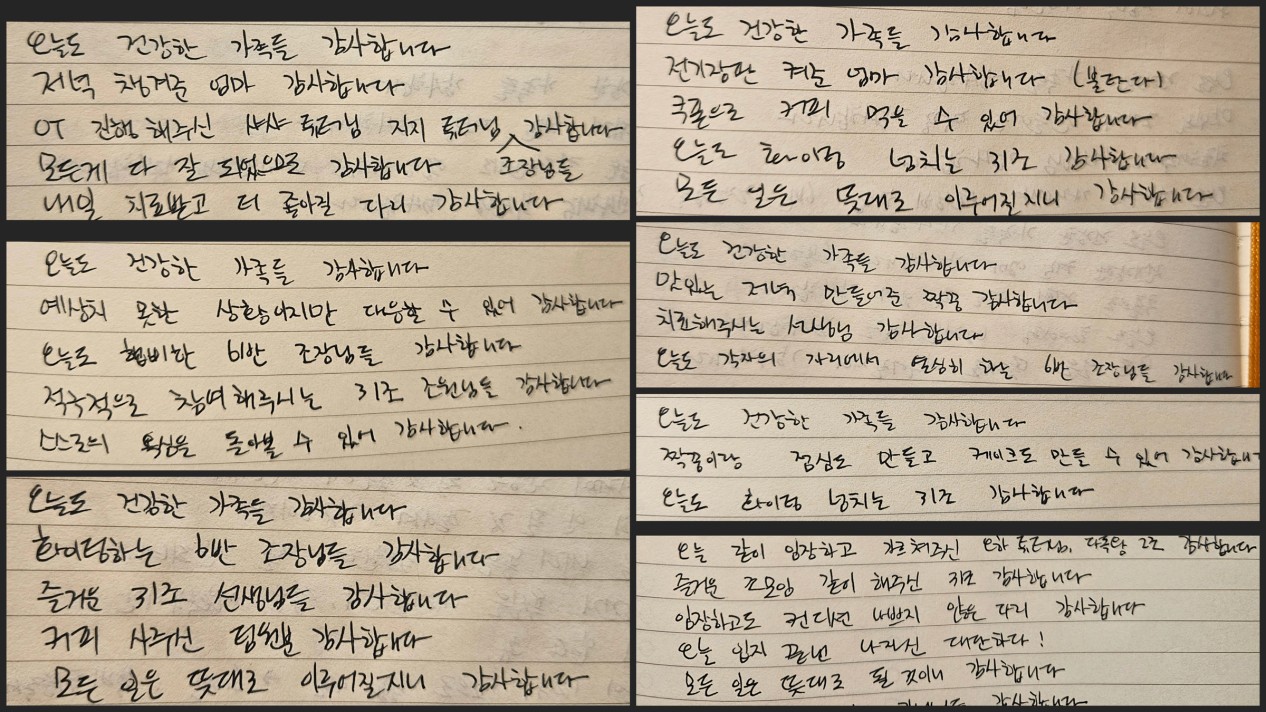 오늘도 건강한 가족들 감사합니다
저녁 챙겨준 엄마 감사합니다
OT 진행해주신 샤샤 튜터님 지지 튜터님 조장님들 감사합니다
모든게 다 잘 되었으므로 감사합니다
내일 치료받고 더 좋아질 다리 감사합니다
오늘도 건강한 가족들 감사합니다
예상치 못한 상황이지만 대응할 수 있어 감사합니다
오늘도 협비한 6반 조장님들 감사합니다
적극적으로 참여해주시는 31조 조원님들 감사합니다
스스로의 욕심을 돌아볼 수 있어 감사합니다.
오늘도 건강한 가족들 감사합니다
화이팅하는 6반 조장님들 감사합니다
즐거운 31조 선생님들 감사합니다
커피 사주신 감사합니다
모든 일은 뜻대로 이루어질지니 감사합니다
오늘도 건강한 가족들 감사합니다
전기장판 켜준 엄마 감사합니다 (불탄다)
쿠폰으로 커피 먹을 수 있어 감사합니다
오늘도 화이팅 넘치는 31조 감사합니다
모든 일은 뜻대로 이루어질지니 감사합니다
오늘도 건강한 가족들 감사합니다
맛있는 저녁 만들어준 짝꿍 감사합니다
치료해주시는 선생님 감사합니다
오늘도 각자의 자리에서 열심히 하는 6반 조장님들 감사합니다
오늘도 건강한 가족들 감사합니다
짝꿍이랑 점심도 만들고 케이크도 만들 수 있어 감사합니다
오늘도 화이팅 넘치는 31조 감사합니다
오늘 같이 임장하고 가르쳐주신 감사합니다
즐거운 조모임 같이 해주신 31조 감사합니다
임장하고도 컨디션 나쁘지 않은 다리 감사합니다
오늘 입지 끝낸 나자신 대단하다!
모든 일은 뜻대로 될 것이니 감사합니다
감사합니다